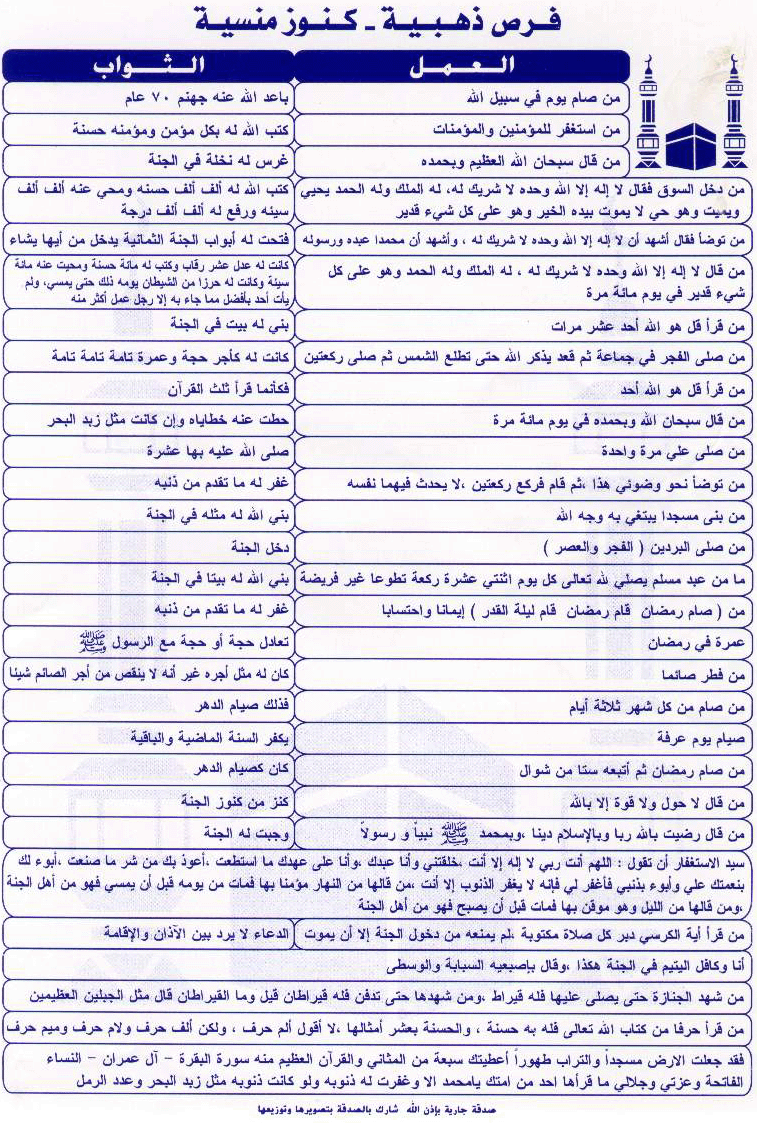 فرص ذهبية ـ كنوز منسية
العمل
الثواب
من صام يوم في سبيل الله
باعد الله عنه جهنم ٧٠ عام
من استغفر للمؤمنين والمؤمنات
كتب الله له بكل مؤمن ومؤمنه حسنة
من قال سبحان الله العظيم وبحمده
غرس له نخلة في الجنة
من دخل السوق فقال لا إله إلا الله وحده لا شريك له، له الملك وله الحمد يحيي
ويميت وهو حي لا يموت بيده الخير وهو على كل شيء قدير
كتب الله له ألف ألف حسنه ومحي عنه ألف ألف
سيئه ورفع له ألف ألف درجة
من توضأ فقال أشهد أن لا إله إلا الله وحده لا شريك له ، وأشهد أن محمدا عبده ورسوله
فتحت له أبواب الجنة الثمانية يدخل من أيها يشاء
من قال لا إله إلا الله وحده لا شريك له ، له الملك وله الحمد وهو على كل
شيء قدير في يوم مائة مرة
كانت له عدل عشر رقاب وكتب له مائة حسنة ومحيت عنه مائة
سيئة وكانت له حرزا من الشيطان يومه ذلك حتى يمسي، ولم
يأت أحد بأفضل مما جاء به إلا رجل عمل أكثر منه
من قرأ قل هو الله أحد عشر مرات
بني له بيت في الجنة
من صلى الفجر في جماعة ثم قعد يذكر الله حتى تطلع الشمس ثم صلى ركعتين
كانت له كأجر حجة وعمرة تامة تامة تامة
من قرأ قل هو الله أحد
فكأنما قرأ ثلث القرآن
من قال سبحان الله وبحمده في يوم مائة مرة
حطت عنه خطاياه وإن كانت مثل زبد البحر
من صلى علي مرة واحدة
صلى الله عليه بها عشرة
من توضأ نحو وضوئي هذا ،ثم قام فركع ركعتين ،لا يحدث فيهما نفسه
غفر له ما تقدم من ذنبه
من بنى مسجدا يبتغي به وجه الله
بني الله له مثله في الجنة
من صلى البردين ( الفجر والعصر )
دخل الجنة
ما من عبد مسلم يصلي لله تعالى كل يوم اثنتي عشرة ركعة تطوعا غير فريضة
بني الله له بيتا في الجنة
من ( صام رمضان قام رمضان قام ليلة القدر ) إيمانا واحتسابا
غفر له ما تقدم من ذنبه
عمرة في رمضان
تعادل حجة أو حجة مع الرسول ﷺ
من فطر صائما
كان له مثل أجره غير أنه لا ينقص من أجر الصائم شيئا
من صام من كل شهر ثلاثة أيام
فذلك صيام الدهر
صيام يوم عرفة
يكفر السنة الماضية والباقية
من صام رمضان ثم أتبعه ستا من شوال
كان كصيام الدهر
من قال لا حول ولا قوة إلا بالله
كنز من كنوز الجنة
من قال رضيت بالله ربا وبالإسلام دينا ،وبمحمد ﷺ نبياً و رسولاً
وجبت له الجنة
سيد الاستغفار أن تقول : اللهم أنت ربي لا إله إلا أنت ،خلقتني وأنا عبدك ،وأنا على عهدك ما استطعت ،أعوذ بك من شر ما صنعت ،أبوء لك
بنعمتك علي وأبوء بذنبي فأغفر لي فإنه لا يغفر الذنوب إلا أنت ،من قالها من النهار مؤمنا بها فمات من يومه قبل أن يمسي فهو من أهل الجنة
،ومن قالها من الليل وهو موقن بها فمات قبل أن يصبح فهو من أهل الجنة
من قرأ أية الكرسي دبر كل صلاة مكتوبة ،لم يمنعه من دخول الجنة إلا أن يموت
الدعاء لا يرد بين الآذان والإقامة
أنا وكافل اليتيم في الجنة هكذا ،وقال بإصبعيه السبابة والوسطى
من شهد الجنازة حتى يصلى عليها فله قيراط ،ومن شهدها حتى تدفن فله قيراطان قيل وما القيراطان قال مثل الجبلين العظيمين
من قرأ حرفا من كتاب الله تعالى فله به حسنة ، والحسنة بعشر أمثالها ،لا أقول ألم حرف ، ولكن ألف حرف ولام حرف وميم حرف
فقد جعلت الارض مسجداً والتراب طهوراً أعطيتك سبعة من المثاني والقرآن العظيم منه سورة البقرة – آل عمران – النساء
الفاتحة وعزتي وجلالي ما قرأها احد من امتك يامحمد الا وغفرت له ذنوبه ولو كانت ذنوبه مثل زبد البحر وعدد الرمل
صدقة جارية بإذن الله شارك بالصدقة بتصويرها وتوزيعها